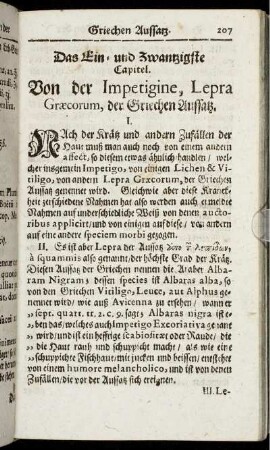 Griechen Aussatz. 207
Das Ein- und Zwantzigste
Capitel.
Von der Impetigine, Lepra
Græcorum, der Griechen Aussatz.
I.
NAch der Krätz und andern Zufällen der
Haut muß man auch noch von einem andern
affect, so diesem etwas ähnlich handlen/ wel-
cher insgemein Impetigo, von einigen Lichen & Vi-
tiligo, von andern Lepra Græcorum, der Griechen
Aussatz genennet wird. Gleichwie aber diese Kranck-
heit geschiedene Nahmen hat also werden auch einerlie
Nahmen auf unterschiedliche Weiß von denen aucto-
ribus applicirt/ und von einigen auf diese/ von andern
auf eine andere speciem morbi gezogen.
II. Es ist aber Lepra der Aussatz
à squammis also genannt, der höchste Grad der Krätz.
Diesen Aussatz der Griechen nennen die Araber Alba-
ram Nigram; dessen species ist Albaras alba, so
von den Griechen Vitiligo, Leuce, aut Alphus genen-
net wird/ wie auß Avicenna zu ersehen/ wann er
„ sept. quart. tt. 2. c. 9. sagt; Albaras nigra ist/ e-
„ ben das/ welches auch Impetigo Excoriativa genannt
„ wird/ und ist ein hefftige scabiosität oder Raude/ die
„ die Haut rauh und schuppicht macht/ als wie eine
„ schuppichte Fischhaut/ mit jucken und beissen/ entstehet
von einem humore melancholico, und ist von denen
Zufällen/ die vor der Aussatz sich ereignen.
III. Le-